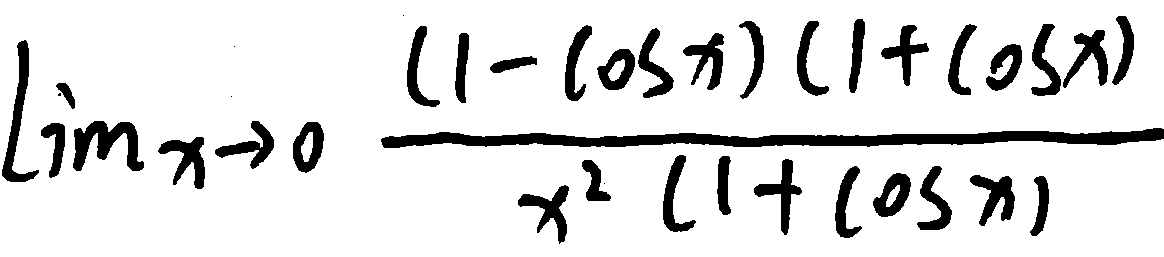 lim x→0 \frac{(1-cosx)(1+cosx)}{x^2(1+cosx)}